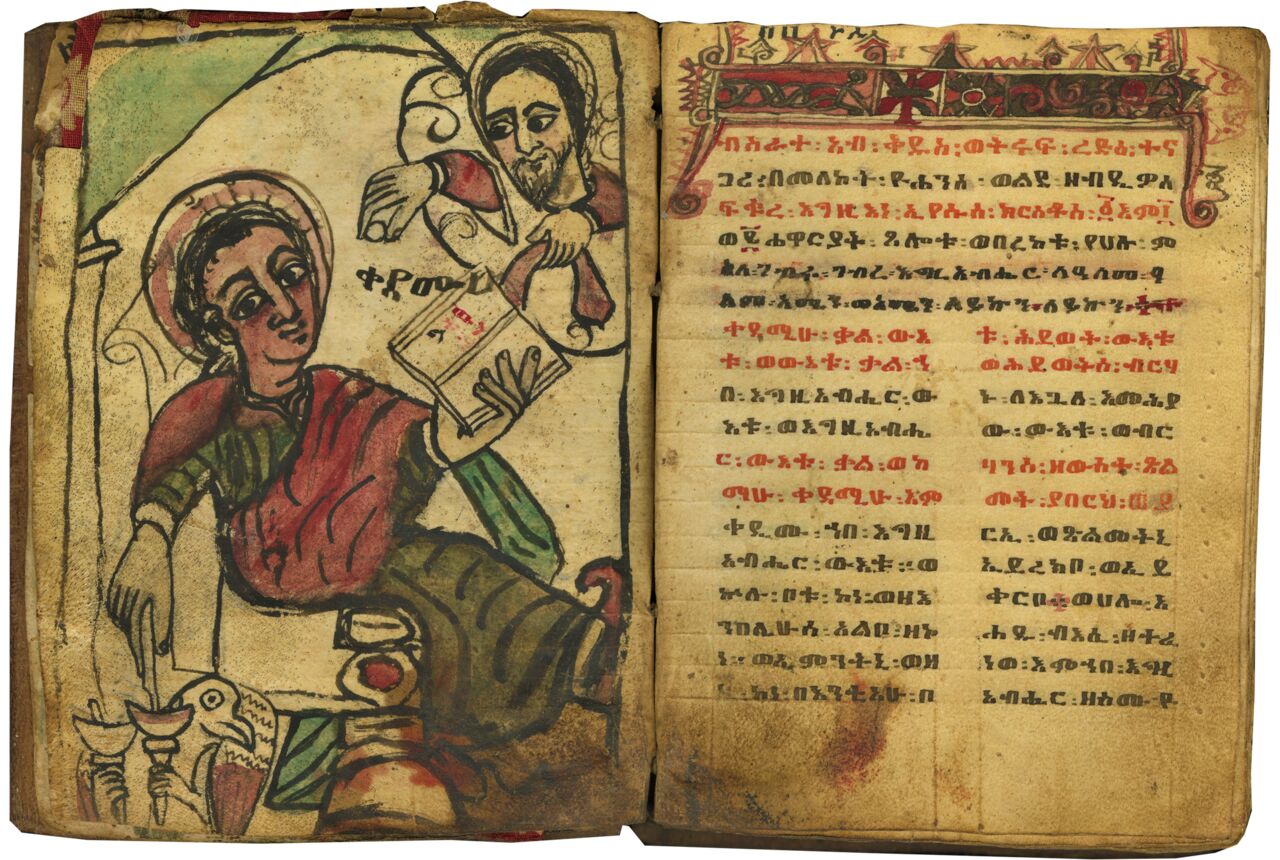 ቀዳሙ
ብስራተ፡አብ፡ቅዱስ፡ወትሩፍ፡ረድእ፡ተና
ጋሪ፡በመለኮት፡ዮሐንስ፡ወልደ፡ዘብዴዎስ
ፍቁረ፡እግዚእነ፡ኢየሱስ፡ክርስቶስ፡፩እም፲
ወ፪ሐዋርያት፡ጸሎቱ፡ወበረከቱ፡የሀሉ፡ም
ስለ፡ገብሩ፡ገብረ፡እግዚአብሔር፡ለዓለመ፡ዓ
ለም፡አሜን፡ወአሜን፡ለይኩን፡ለይኩን፡
ቀዳሚሁ፡ቃል፡ውእ
ቱ፡ወውእቱ፡ቃል፡ኀ
በ፡እግዚአብሔር፡ው
እቱ፡ወእግዚአብሔ
ር፡ውእቱ፡ቃል፡ወከ
ማሁ፡ቀዳሚሁ፡እም
ቀዲሙ፡ኀበ፡እግዚ
አብሔር፡ውእቱ፡ወ
ኵሉ፡ቦቱ፡ኮነ፡ወዘእ
ንበሌሁሰ፡አልቦ፡ዘኮ
ነ፡ወኢምንትኒ፡ወዘ
ሂ፡ኮነ፡በእንቲአሁ፡በ
ቱ፡ሕይወት፡ውእቱ
ወሕይወትሰ፡ብርሃ
ኑ፡ለእጓለ፡እመሕያ
ው፡ውእቱ፡ወብር
ሃንሰ፡ዘውስተ፡ጽል
መት፡ያበርህ፡ወያ
ርኢ፡ወጽልመትኒ
ኢይረክቦ፡ወኢይ
ቀርቦ፡ወሀሎ፡አ
ሐዱ፡ብእሲ፡ዘተፈ
ነወ፡እምኀበ፡እግዚ
አብሔር፡ዘስሙ፡ዮ